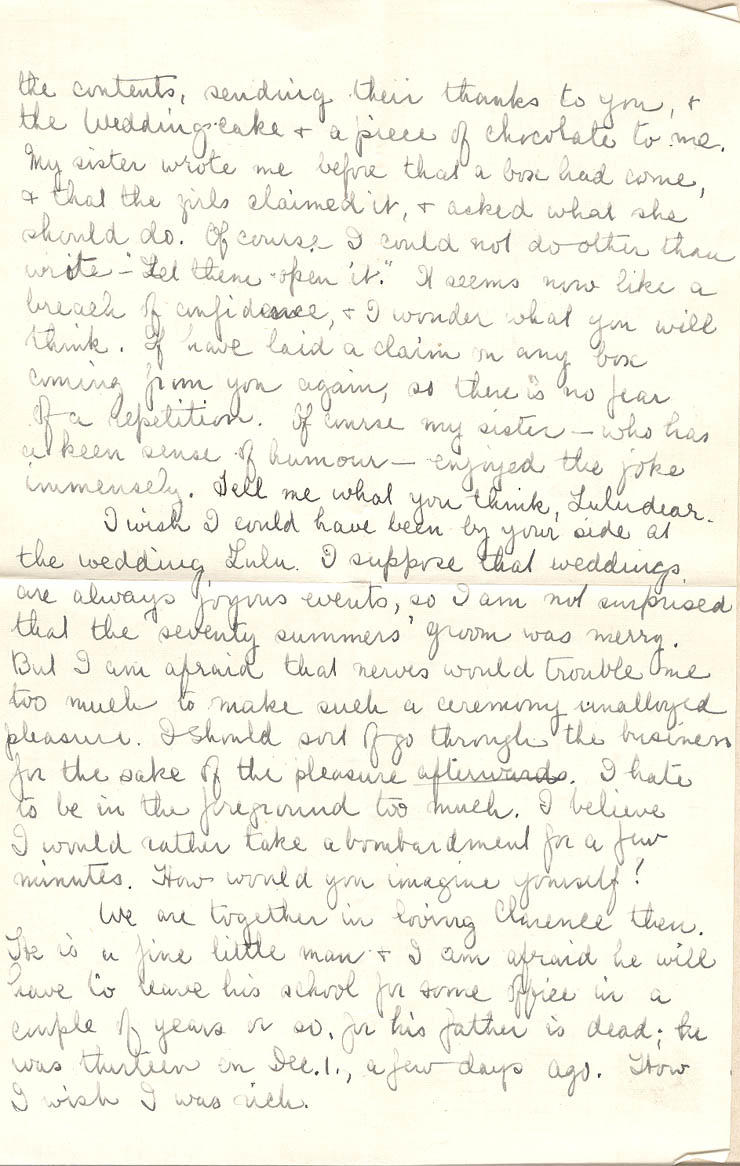 the contents, sending their thanks to you, &
the Wedding-cake & a piece of chocolate to me.
My sister wrote me before that a box had come,
& that the girls claimed it, & asked what she
should do. Of course I could not do other than
write - "Let them open it." It seems now like a
breach of confidence, & I wonder what you will
think. I have laid a claim on any box
coming from you again, so there is no fear
of a repetition. Of course my sister - who has
a keen sense of humour - enjoyed the joke
immensely. Tell me what you think, Lulu dear.
I wish I could have been by your side at
the wedding Lulu. I suppose that weddings
are always joyous events, so I am not surprised
that the "seventy summers" groom was merry.
But I am afraid that nerves would trouble me
too much to make such a ceremony unalloyed
pleasure. I should sort of go through the business
for the sake of the pleasure afterwards. I hate
to be in the foreground too much. I believe
I would rather take a bombardment for a few
minutes. How would you imagine yourself!
We are together in loving Clarence then.
He is a fine little man & I am afraid he will
have to leave his school for some office in a
couple of years or so, for his father is dead; he
was thirteen on Dec. 1., a few days ago. How
I wish I was rich.